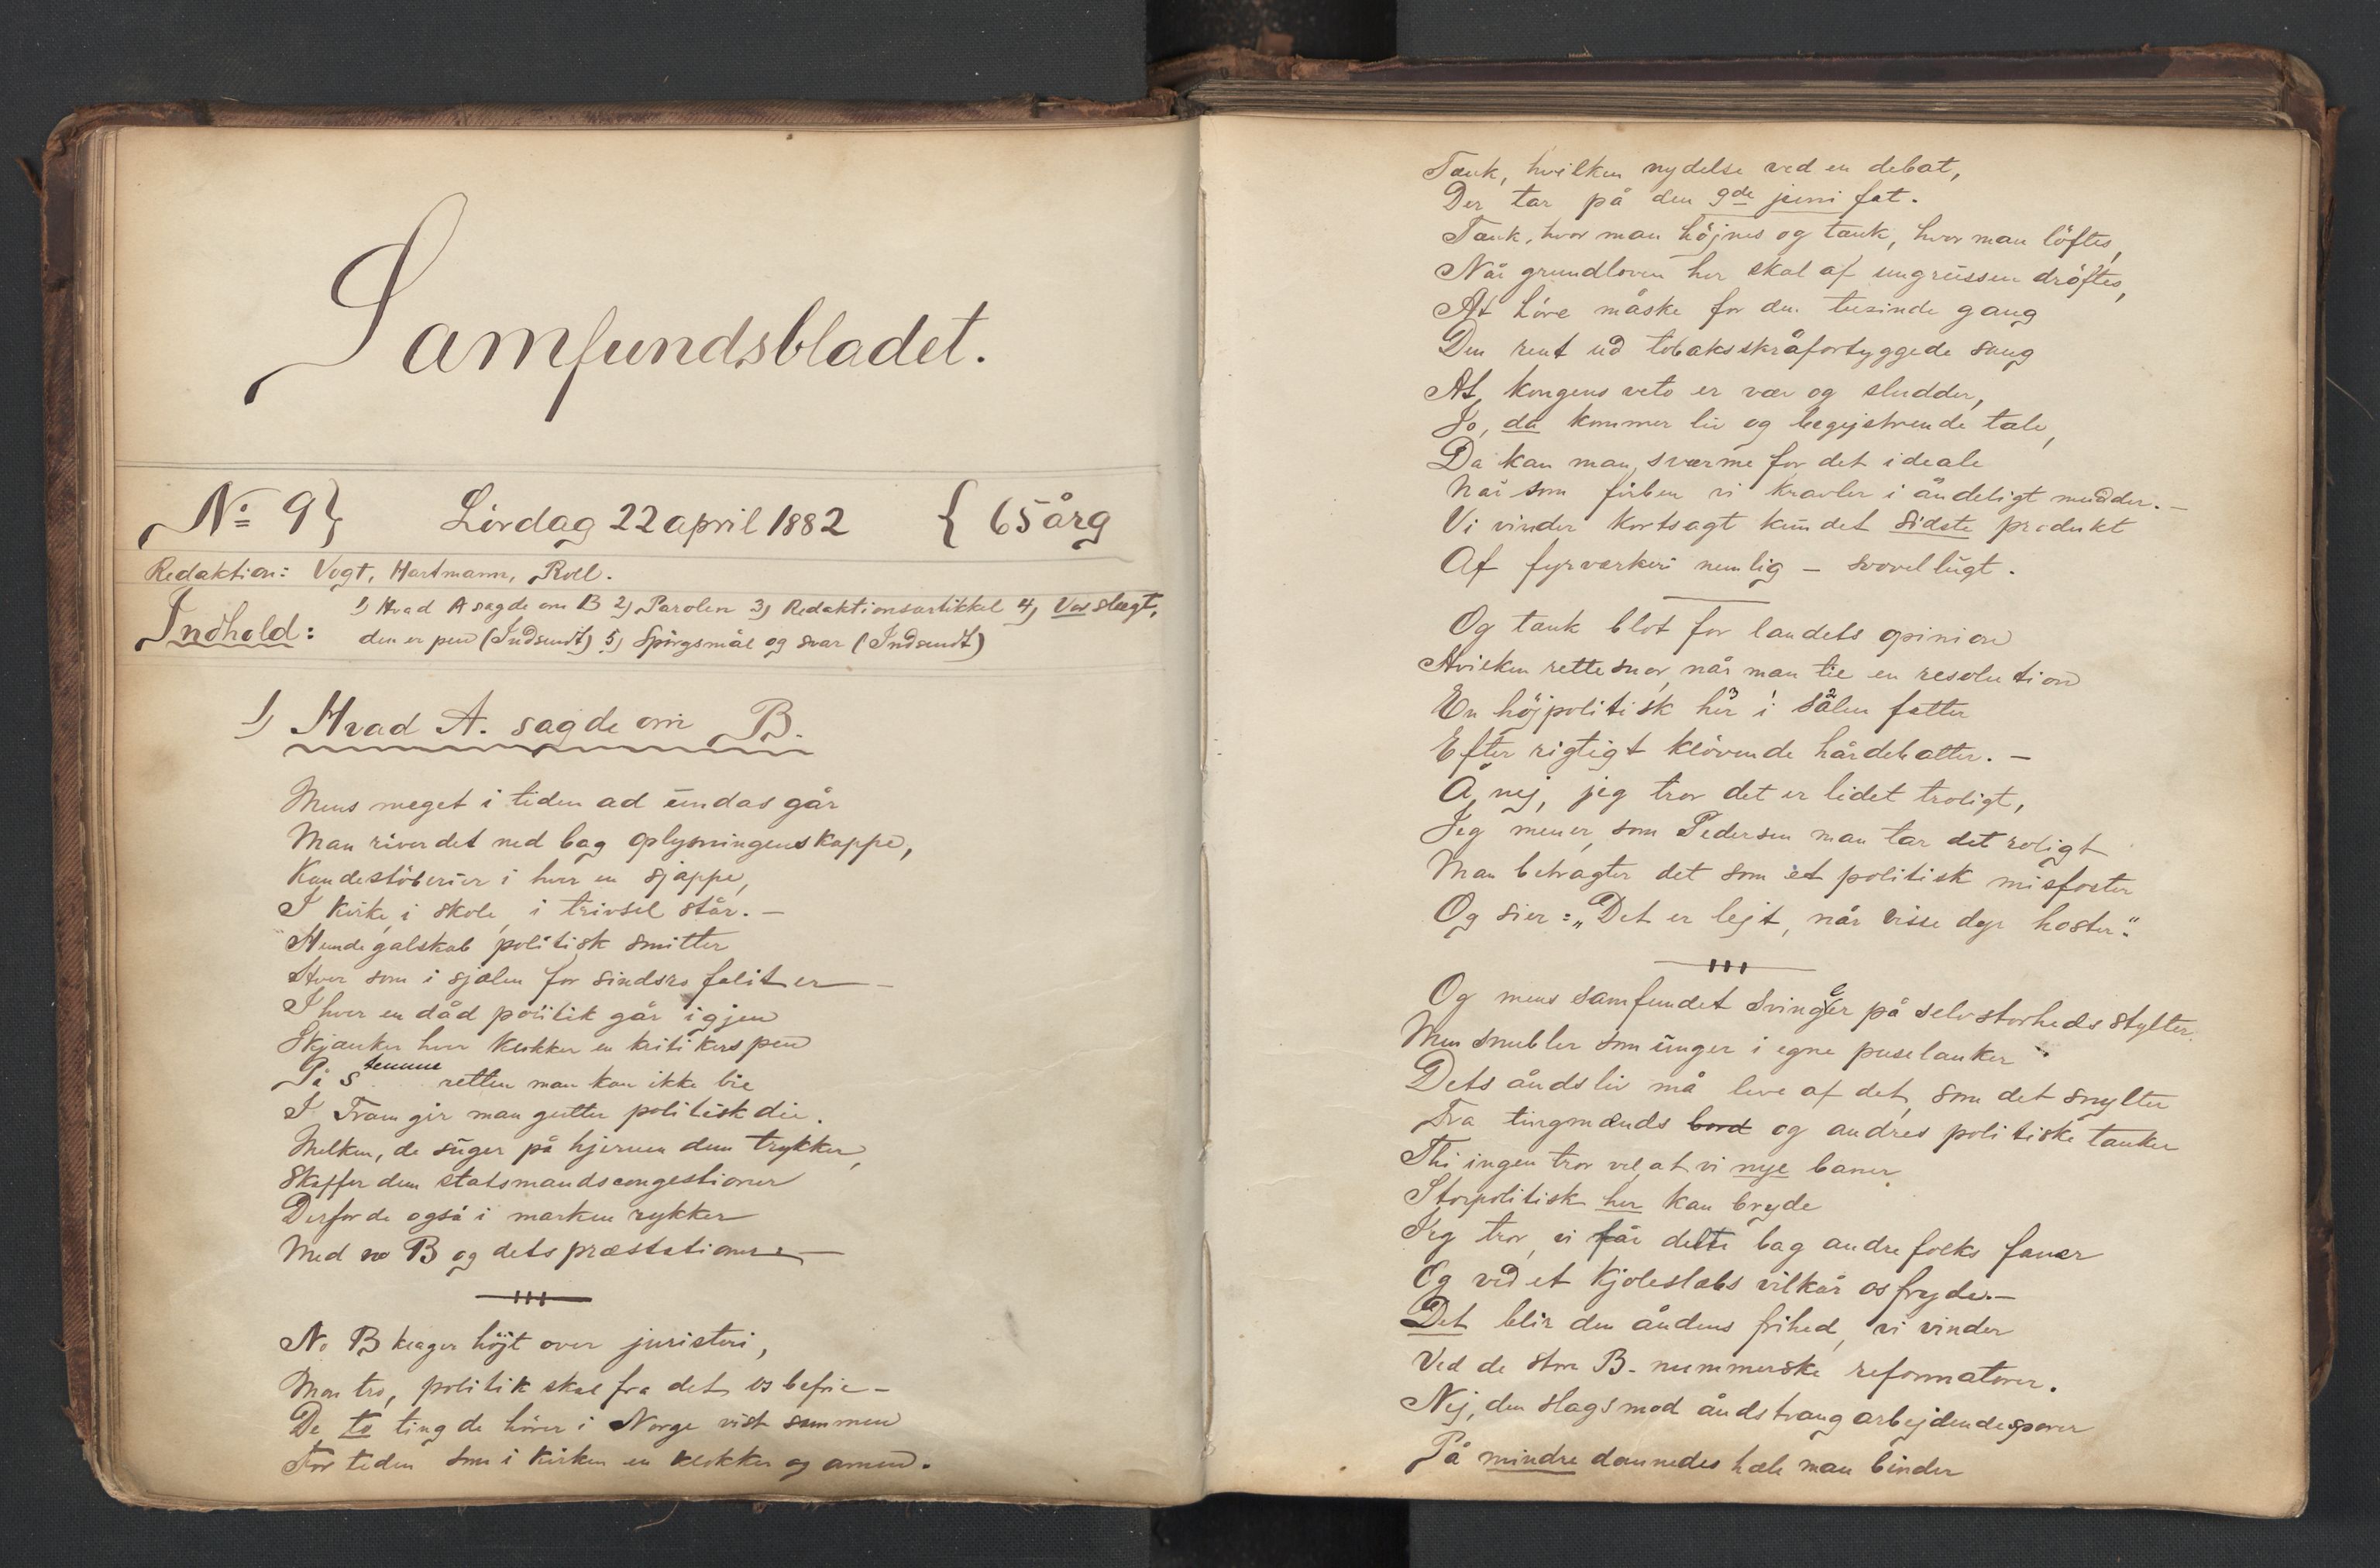 Samfundsbladet.
No 9} Lördag 22 april 1882 { 65 årg
Redaktion: Vogt, Hartmann, Roll.
Indhold: 1) Hvad A sagde om B 2) Parolen 3) Redaktionsartikkel 4) Vor slægt,
den er pen (Indsendt) 5) Spörgsmål og svar (Indsendt)
1) Hvad A. sagde om B.
Mens meget i tiden ad undas går
Man river det ned bag oplysningens kappe,
Kandestöberier i hver en sjappe,
I kirke, i skole, i trivsel står. –
Hundegalskab politisk smitter
Hver som i sjælen for sindsro falit er –
I hver en dåd politik går igjen
Skjænker hver klokker en kritikers pen
På stemmeretten man kan ikke bie
I Fram gir man gutter politisk die.
Melken, de suger på hjernen dem trykker,
Skaffer dem statsmandscongestioner
Derfor de også i marken rykker
Med no B og dets præstationer –
No B klager höjt over juristeri,
Mon tro, politik skal fra det os befrie –
De to ting de hörer i Norge vist sammen
For tiden som i kirken en klokker og amen.
Tænk, hvilken nydelse ved en debat,
Der tar på den 9de juni fat.
Tænk, hvor man höjnes og tænk, hvor man löftes,
Når grundloven her skal af ungrussen dröftes,
At höre måske for den tusinde gang
Den rent ud tobaksskråfortyggede sang
At, kongens veto er vær og sludder,
Jo, da kommer liv og begejstrende tale,
Da kan man sværme for det ideale
Når som firben vi kravler i åndeligt mudder. –
Vi vinder kortsagt kun det sidste produkt
Af fyrværkeri nemlig – svovellugt.
Og tænk blot for landets opinion
Hvilken rettesnor, når man til en resolution
En höjpolitisk her i sålen fatter
Efter rigtigt klövende hårdebatter. –
Å nej, jeg tror det er lidet troligt,
Jeg mener, som Pedersen man tar det roligt
Man betragter det som et politisk misfoster
Og sier: „Det er lejt, når visse dyr hoster."
Og mens samfundet svinger på selvstorheds stylter
Men snubler som unger i egne puselanker
Dets åndsliv må leve af det, som det snylter
Fra tingmænds bord og andres politiske tanker
Thi ingen tror vel, at vi nye baner
Storpolitisk her kan bryde
Jeg tror, vi får delte bag andre folks faner
Og ved et kjoleslæbs vilkår os fryde. –
Det blir den åndens frihed, vi vinder
Ved de store B-nummerske reformatorer.
Nej, den slags mod åndstvang arbejdende sporer
På mindre dannedes hæle man binder